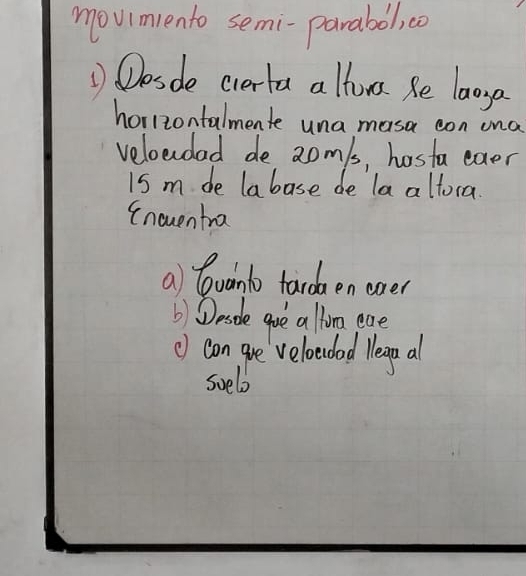 movimiento semi-parabólico
1) Desde cierta altura se lanza
horizontalmente una masa con una
velocidad de 20m/s, hasta caer
15 m de la base de la altura.
Encuentra
a) Cuánto tarda en caer
b) Desde qué altura cae
c) con que velocidad llega al
suelo